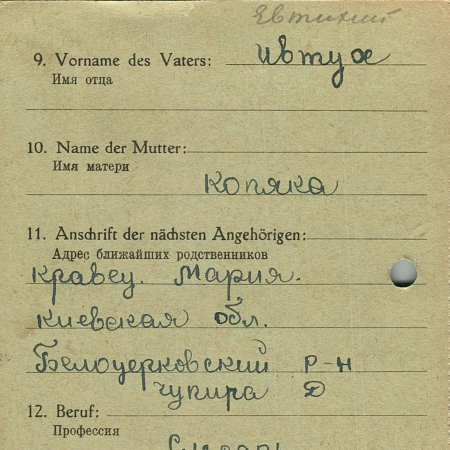 Евтихий
9. Vorname des Vaters: Ивтух
Имя отца
10. Name der Mutter:
Имя матери
Копяка
11. Anschrift der nächsten Angehörigen:
Адрес ближайших родственников
Кравец. Мария.
Киевская обл.
Белоцерковский р-н
Чупира Д
12. Beruf:
Профессия